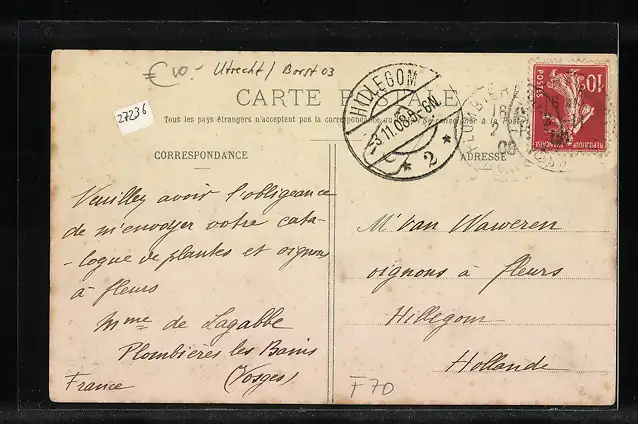 € 10.- Utrecht / Borst 03
27236
CARTE POSTALE
Tous les pays étrangers n'acceptent pas la correspondance au Se renseigner à la Poste
CORRESPONDANCE
ADRESSE
HILLEGOM
3.11.08.5-6N.
2
POSTES
10c
REPUBLIQUE FRANÇAISE
Veuillez avoir l'obligeance
de m'envoyer votre cata-
-logue de plantes et oignons
à fleurs
Mme de Lagabbe
Plombières les Bains
(Vosges)
France
Mr Van Waweren
oignons à fleurs
Hillegom
Hollande
F70